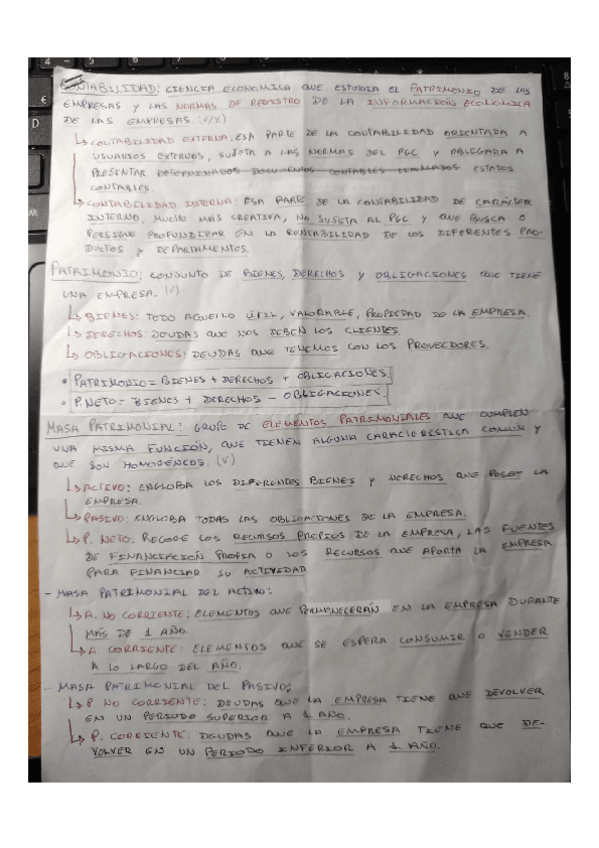 CONTABILIDAD: CIENCIA ECONOMICA QUE ESTUDIA EL PATRIMONIO DE LAS
EMPRESAS Y LAS NORMAS DE REGISTRO DE LA INFORMACIÓN ECONOMICA
DE LAS EMPRESAS (V/X)
↳ CONTABILIDAD EXTERNA: ESA PARTE DE LA CONTABILIDAD ORIENTADA A
USUARIOS EXTERNOS, SUJETA A LAS NORMAS DEL PGC Y OBLIGADA A
PRESENTAR DETERMINADOS DOCUMENTOS CONTABLES LLAMADOS ESTADOS
CONTABLES.
↳ CONTABILIDAD INTERNA: ESA PARTE DE LA CONTABILIDAD DE CARÁCTER
INTERNO, MUCHO MAS CREATIVA, NO SUJETA AL PGC Y QUE BUSCA O
PERSIGUE PROFUNDIZAR EN LA RENTABILIDAD DE LOS DIFERENTES PRO-
DUCTOS Y DEPARTAMENTOS.
PATRIMONIO: CONJUNTO DE BIENES, DERECHOS Y OBLIGACIONES QUE TIENE
UNA EMPRESA. (V)
↳ BIENES: TODO AQUELLO ÚTIL, VALORABLE, PROPIEDAD DE LA EMPRESA.
↳ DERECHOS: DEUDAS QUE NOS DEBEN LOS CLIENTES.
↳ OBLIGACIONES: DEUDAS QUE TENEMOS CON LOS PROVEEDORES.
• PATRIMONIO = BIENES + DERECHOS + OBLIGACIONES.
• P. NETO = BIENES + DERECHOS - OBLIGACIONES.
MASA PATRIMONIAL: GRUPO DE ELEMENTOS PATRIMONIALES QUE CUMPLEN
UNA MISMA FUNCIÓN, QUE TIENEN ALGUNA CARACTERÍSTICA COMÚN Y
QUE SON HOMOGÉNEOS. (V)
↳ ACTIVO: ENGLOBA LOS DIFERENTES BIENES Y DERECHOS QUE POSEE LA
EMPRESA.
↳ PASIVO: ENGLOBA TODAS LAS OBLIGACIONES DE LA EMPRESA.
↳ P. NETO: RECOGE LOS RECURSOS PROPIOS DE LA EMPRESA, LAS FUENTES
DE FINANCIACIÓN PROPIA O LOS RECURSOS QUE APORTA LA EMPRESA
PARA FINANCIAR SU ACTIVIDAD
- MASA PATRIMONIAL DEL ACTIVO:
↳ A. NO CORRIENTE: ELEMENTOS QUE PERMANECERÁN EN LA EMPRESA DURANTE
MÁS DE 1 AÑO.
↳ A. CORRIENTE: ELEMENTOS QUE SE ESPERA CONSUMIR O VENDER
A LO LARGO DEL AÑO.
- MASA PATRIMONIAL DEL PASIVO:
↳ P. NO CORRIENTE: DEUDAS QUE LA EMPRESA TIENE QUE DEVOLVER
EN UN PERIODO SUPERIOR A 1 AÑO.
↳ P. CORRIENTE: DEUDAS QUE LA EMPRESA TIENE QUE DE-
VOLVER EN UN PERIODO INFERIOR A 1 AÑO.